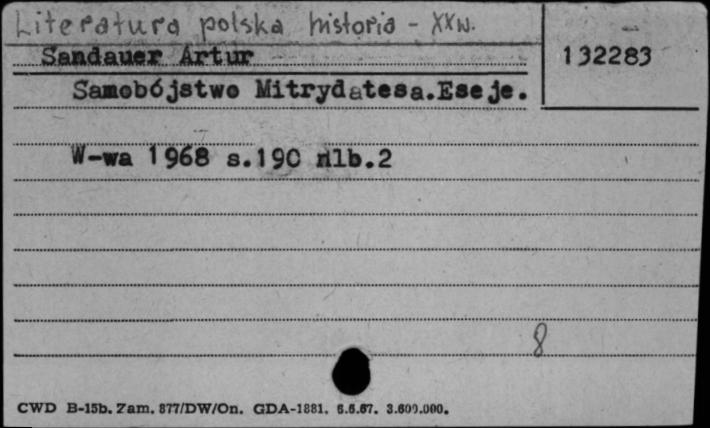 Literatura polska historia - XX w.
Sandauer Artur
132283
Samobójstwo Mitrydatesa.Eseje.
W-wa 1968 s.190 nlb.2
8
CWD B-15b. Zam. 877/DW/On. GDA-1881. 6.6.67. 3.600.000.